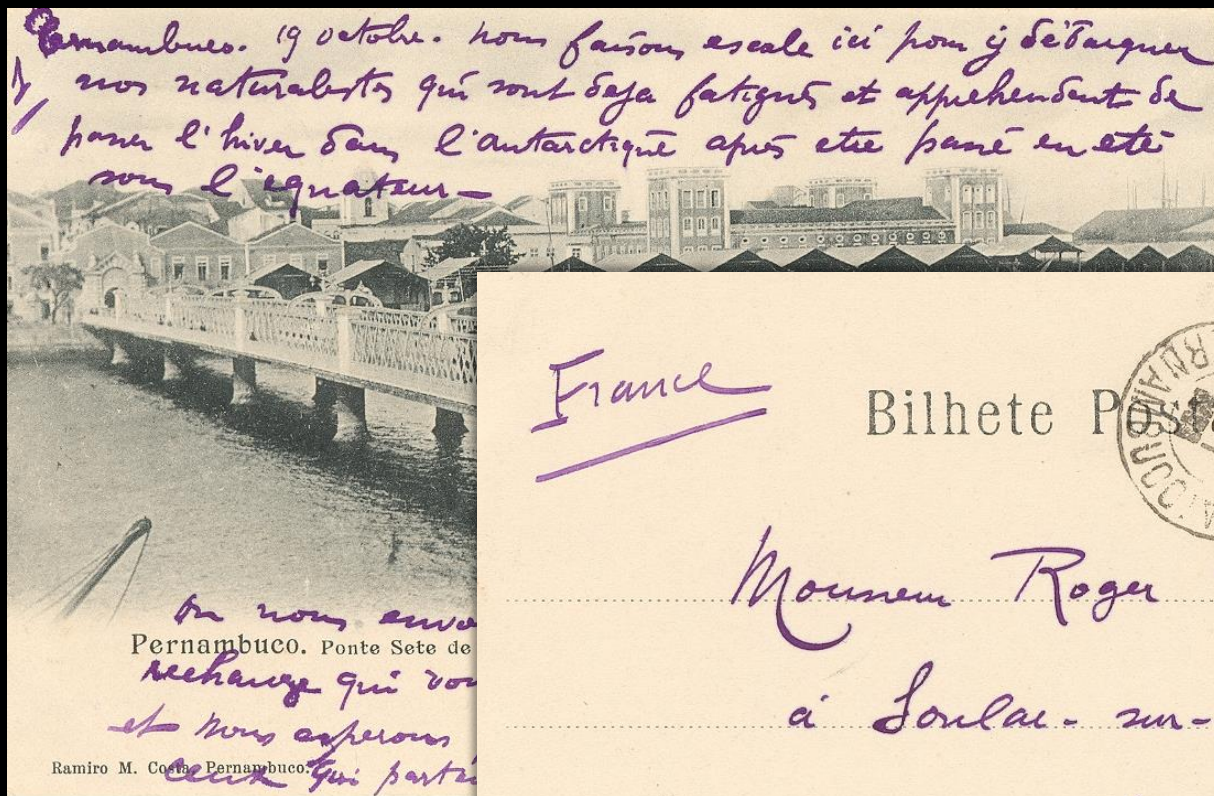 Pernambuco. 19 octobre. nous faisons escale ici pour y débarquer
nos naturalistes qui sont deja fatigués et apprehendent de
passer l'hiver dans l'antarctique après etre passé en eté
sous l'equateur—
on nous envo
Pernambuco. Ponte Sete de
rechange qui
et nous esperons
Ramiro M. Costa, Pernambuco.
ceux qui parta
France
Bilhete Posta
PERNAMBUCO
Monsieur Roger
à Soulac-sur-